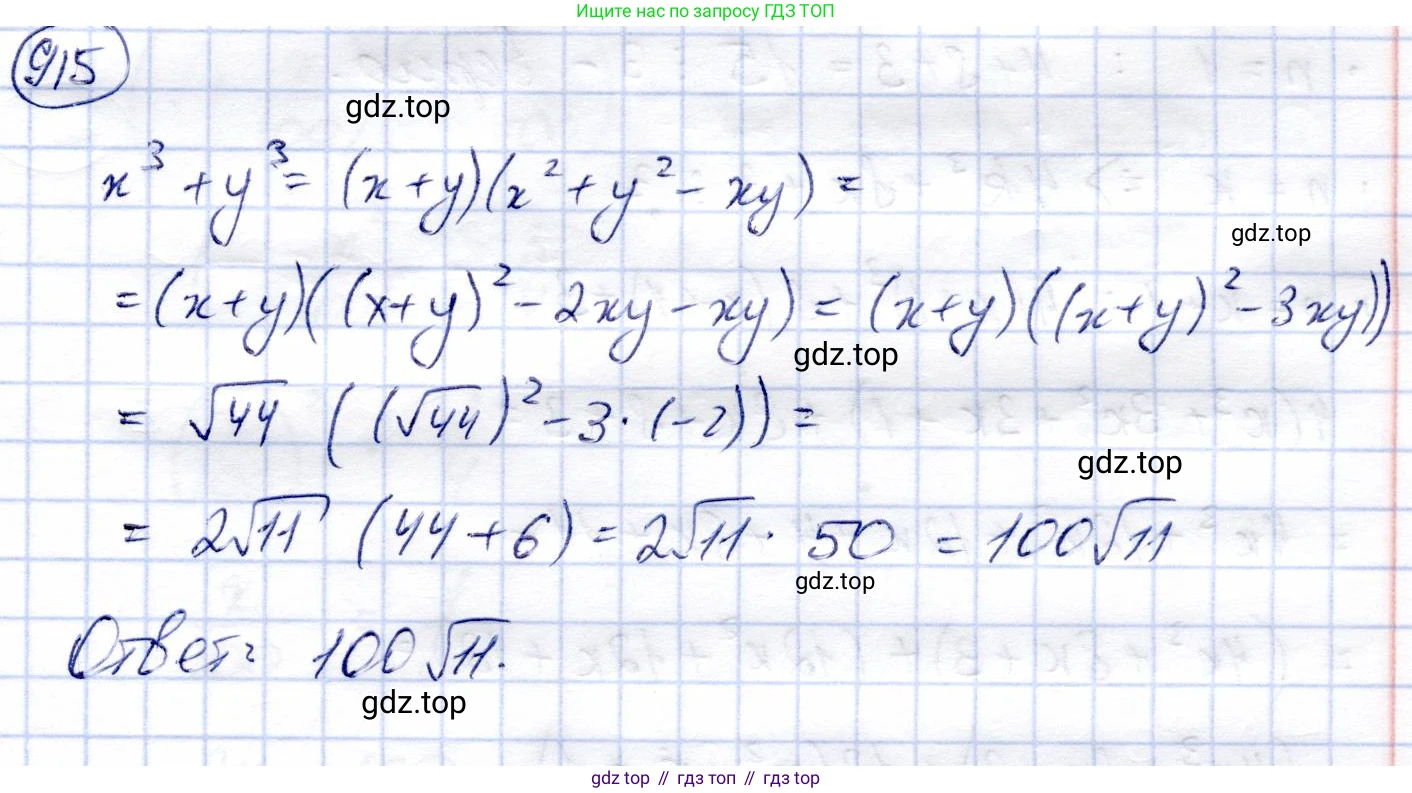 Ищите нас по запросу ГДЗ ТОП
915
gdz.top
x³ + y³ = (x + y)(x² + y² - xy) =
gdz.top
= (x + y)((x + y)² - 2xy - xy) = (x + y)((x + y)² - 3xy))
gdz.top
= √44 ((√44)² - 3 · (-2)) =
gdz.top
= 2√11 (44 + 6) = 2√11 · 50 = 100√11
gdz.top
Ответ: 100√11.
gdz.top
gdz top // гдз топ // гдз top